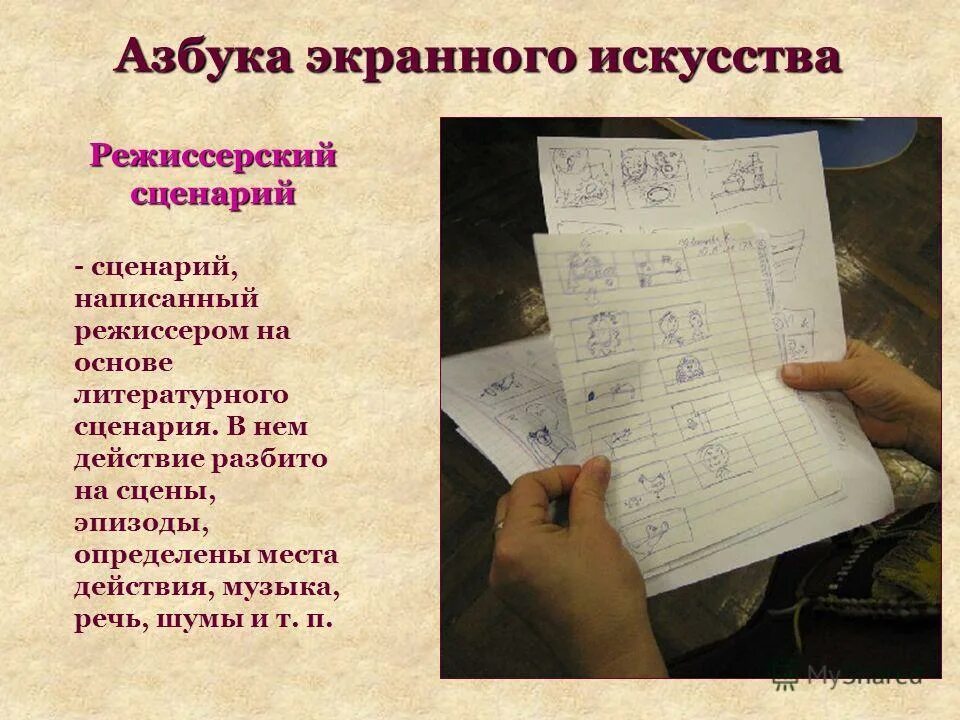 Азбука экранного искусства
Режиссерский
сценарий
- сценарий,
написанный
режиссером на
основе
литературного
сценария. В нем
действие разбито
на сцены,
эпизоды,
определены места
действия, музыка,
речь, шумы и т. п.
MyShared